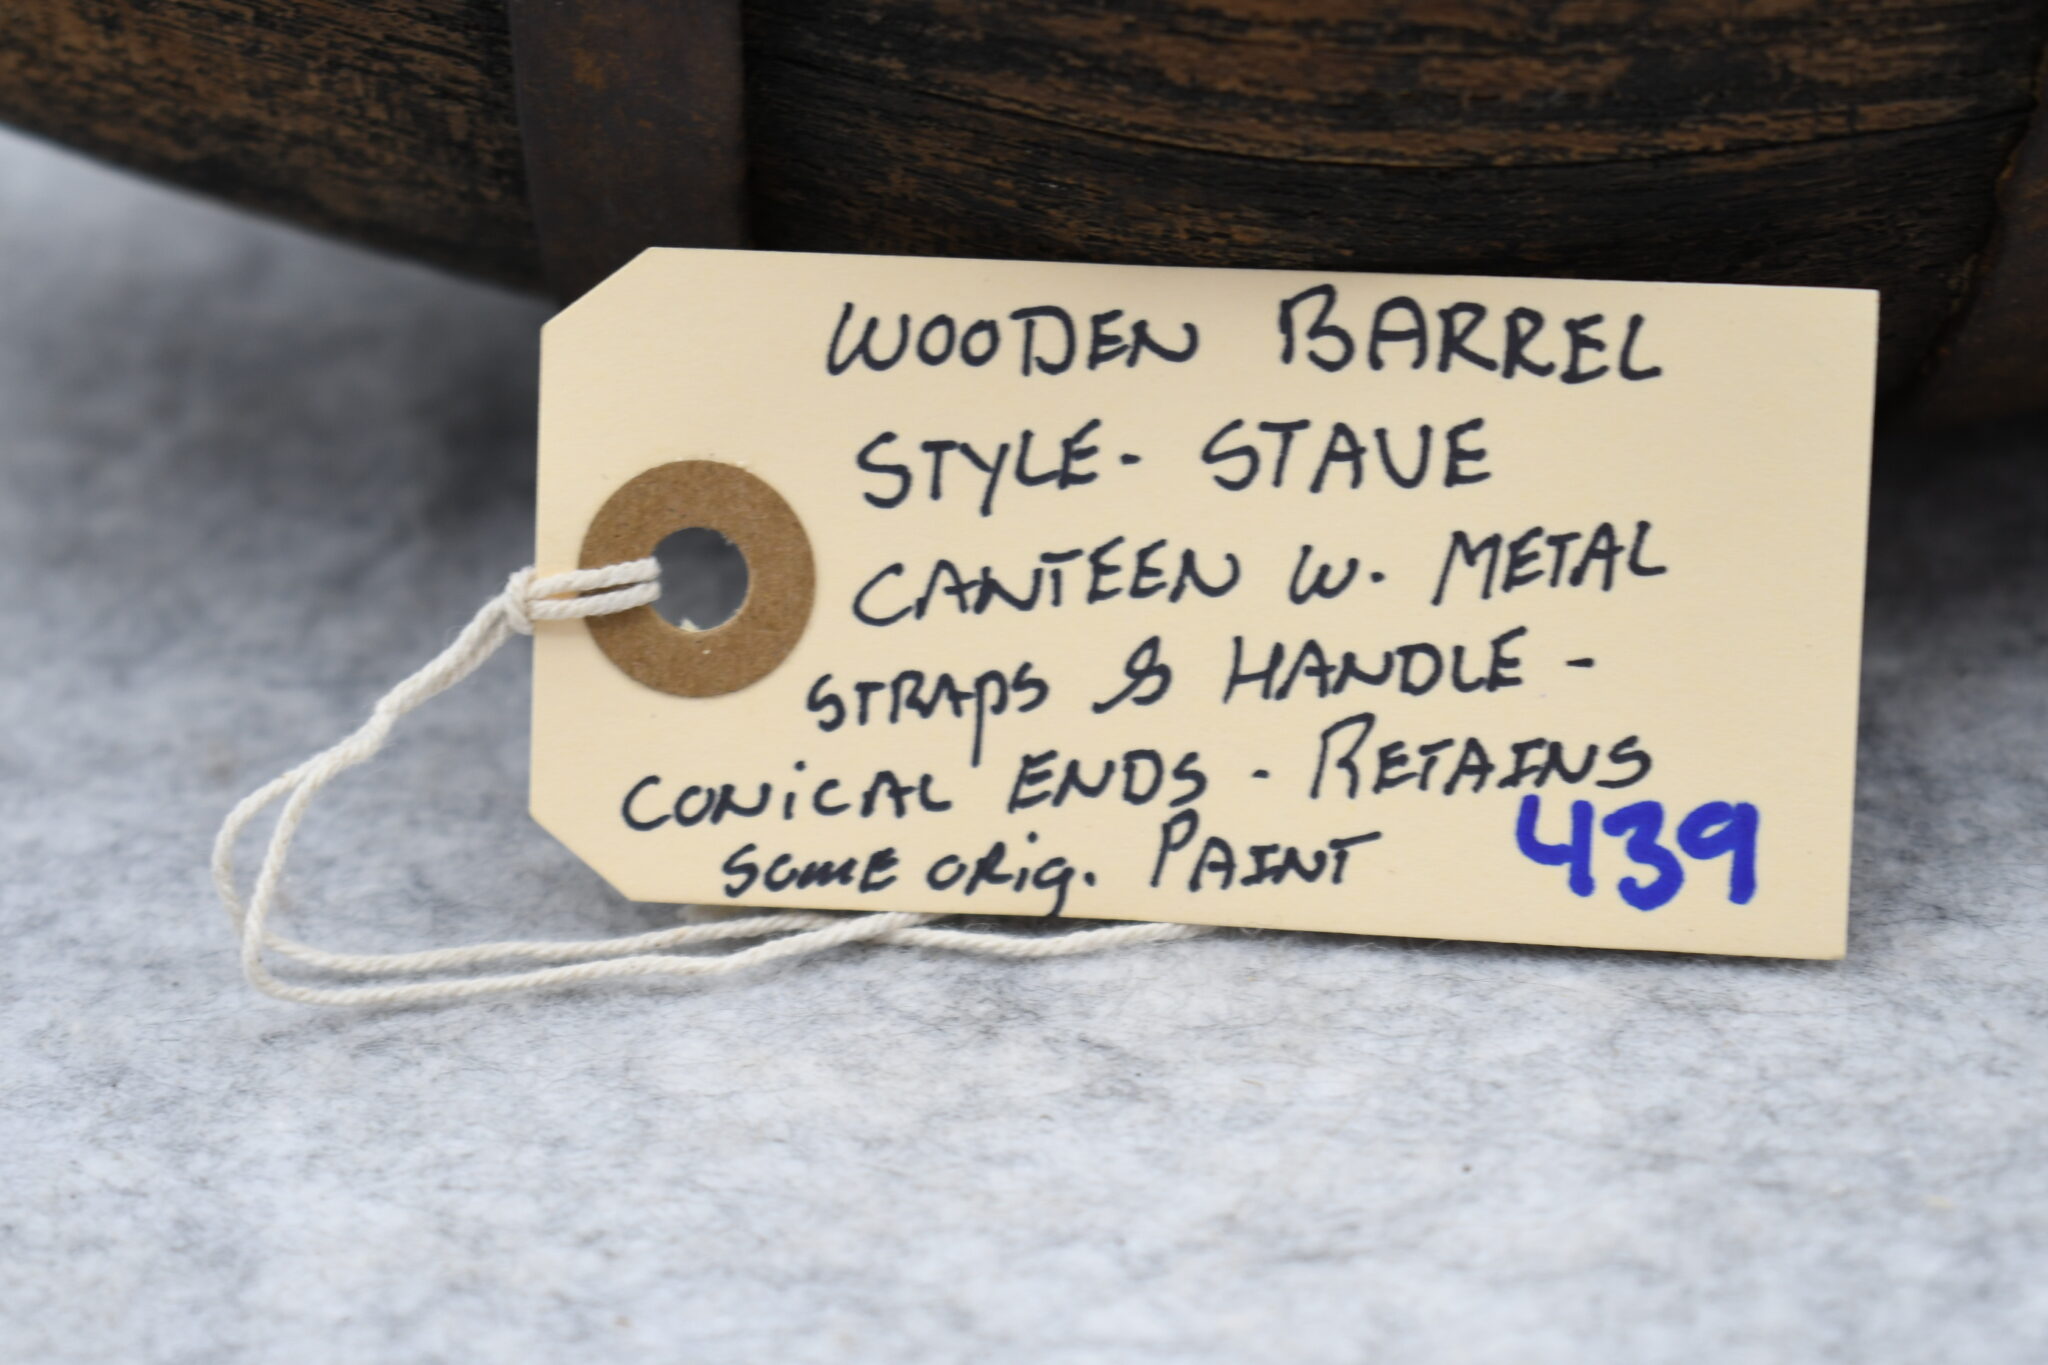 WOODEN BARREL
STYLE- STAVE
CANTEEN W. METAL
STRAPS & HANDLE -
CONiCAL ENDS - RETAINS
SOME ORig. PAINT 439